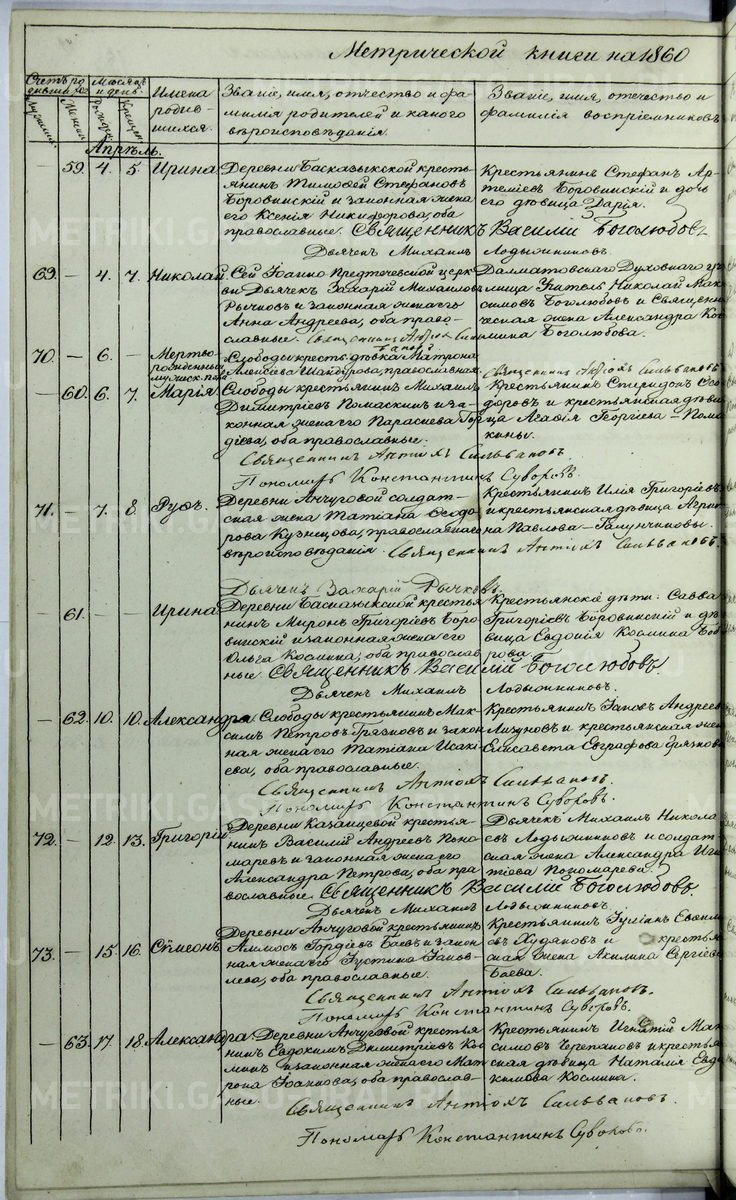 Метрической книги на 1860
Счетъ родившихся
Мужеска
Женска
Месяцъ и день
Рожденія
Крещенія
Имена родившихся.
Званіе, имя, отчество и фамилія родителей и какого вѣроисповѣданія.
Званіе, имя, отечество и фамилія воспріемниковъ
Апрѣль.
— 59. 4. 5. Ирина
Деревни Басказыкской кресть-
янинъ Тимоѳей Стефановъ
Боровинскій и законная жена
его Ксенія Никифорова, оба
православные.
Крестьянинъ Стефанъ Ар-
теміевъ Боровинскій и дочь
его дѣвица Дарія.
Священникъ Василій Боголюбовъ
Дьячекъ Михаилъ Лодыжниковъ.
69. — 4. 7. Николай
Сей Іоанно Предтечевской церк-
ви Дьячекъ Захарій Михаиловъ
Рычковъ и законная жена его
Анна Андреева, оба право-
славные.
Далматовскаго Духовнаго учи-
лища Учитель Николай Мак-
симовъ Боголюбовъ и Священни-
ческая жена Александра Кос-
мина Боголюбова.
70. — 6. —
Мертво-
рожденный
Слободы кресть. дѣвка Матрона
Алексѣева Шайдурова, православная
Священникъ Антіохъ Сильвановъ
— 60. 6. 7. Марія.
Слободы крестьянинъ Михаилъ
Димитріевъ Помаскинъ и за-
конная жена его Параскева Геор-
гіева, оба православные.
Крестьянинъ Спиридонъ Ѳео-
доровъ и крестьянская дѣви-
ца Агаѳія Георгіева — Пома-
кины.
Священникъ Антіохъ Сильвановъ
Пономарь Константинъ Суворовъ.
71. — 7. 8. Руфъ.
Деревни Анчуговой солдат-
ская жена Татіана Ѳеодо-
рова Кузнецова, православнаго
вѣроисповѣданія.
Крестьянинъ Илія Григоріевъ
и крестьянская дѣвица Агрип-
на Павлова — Галунчиковы.
Священникъ Антіохъ Сильвановъ.
Дьячекъ Захарій Рычковъ.
— 61. Ирина
Деревни Басказыкской крестья-
нинъ Миронъ Григоріевъ Боро-
винскій и законная жена его
Ольга Космина, оба православ-
ные.
Крестьянскіе дѣти: Савва
Григоріевъ Боровинскій и дѣ-
вица Евдокія Космина Боб-
рова.
Священникъ Василій Боголюбовъ.
Дьячекъ Михаилъ Лодыжниковъ.
— 62. 10. 10. Александра.
Слободы крестьянинъ Мак-
симъ Петровъ Грязновъ и закон-
ная жена его Татіана Исакі-
ева, оба православные.
Крестьянинъ Іаковъ Андреевъ
Лизуновъ и крестьянская жена
Елисавета Евграфова Грязнова
Священникъ Антіохъ Сильвановъ.
Пономарь Константинъ Суворовъ.
72. — 12. 13. Григорій
Деревни Казанцевой крестья-
нинъ Василій Андреевъ Поно-
маревъ и законная жена его
Александра Петрова, оба пра-
вославное.
Дьячекъ Михаилъ Никола-
евъ Лодыжниковъ и солдат-
ская жена Александра Игна-
тіева Пономарева.
Священникъ Василій Боголюбовъ.
Дьячекъ Михаилъ Лодыжниковъ.
73. — 15. 16. Сѵмеонъ.
Деревни Анчуговой крестьянинъ
Гордіевъ Баевъ и закон-
ная жена его Іустина Іаков-
лева, оба православные.
Крестьянинъ Іуліанъ Евѳимі-
евъ Худяковъ и крестьян-
ская жена Акилина Сергіева
Баева.
Священникъ Антіохъ Сильвановъ.
Пономарь Константинъ Суворовъ.
— 63. 17. 18. Александра.
Деревни Анчуговой крестья-
нинъ Евдокимъ Димитріевъ Кос-
минъ и законная жена его Мат-
рона Іоаннова, оба православ-
ные.
Крестьянинъ Игнатій Мак-
симовъ Черепановъ и крестьян-
ская дѣвица Наталія Евдо-
кимова Космина.
Священникъ Антіохъ Сильвановъ.
Пономарь Константинъ Суворовъ.